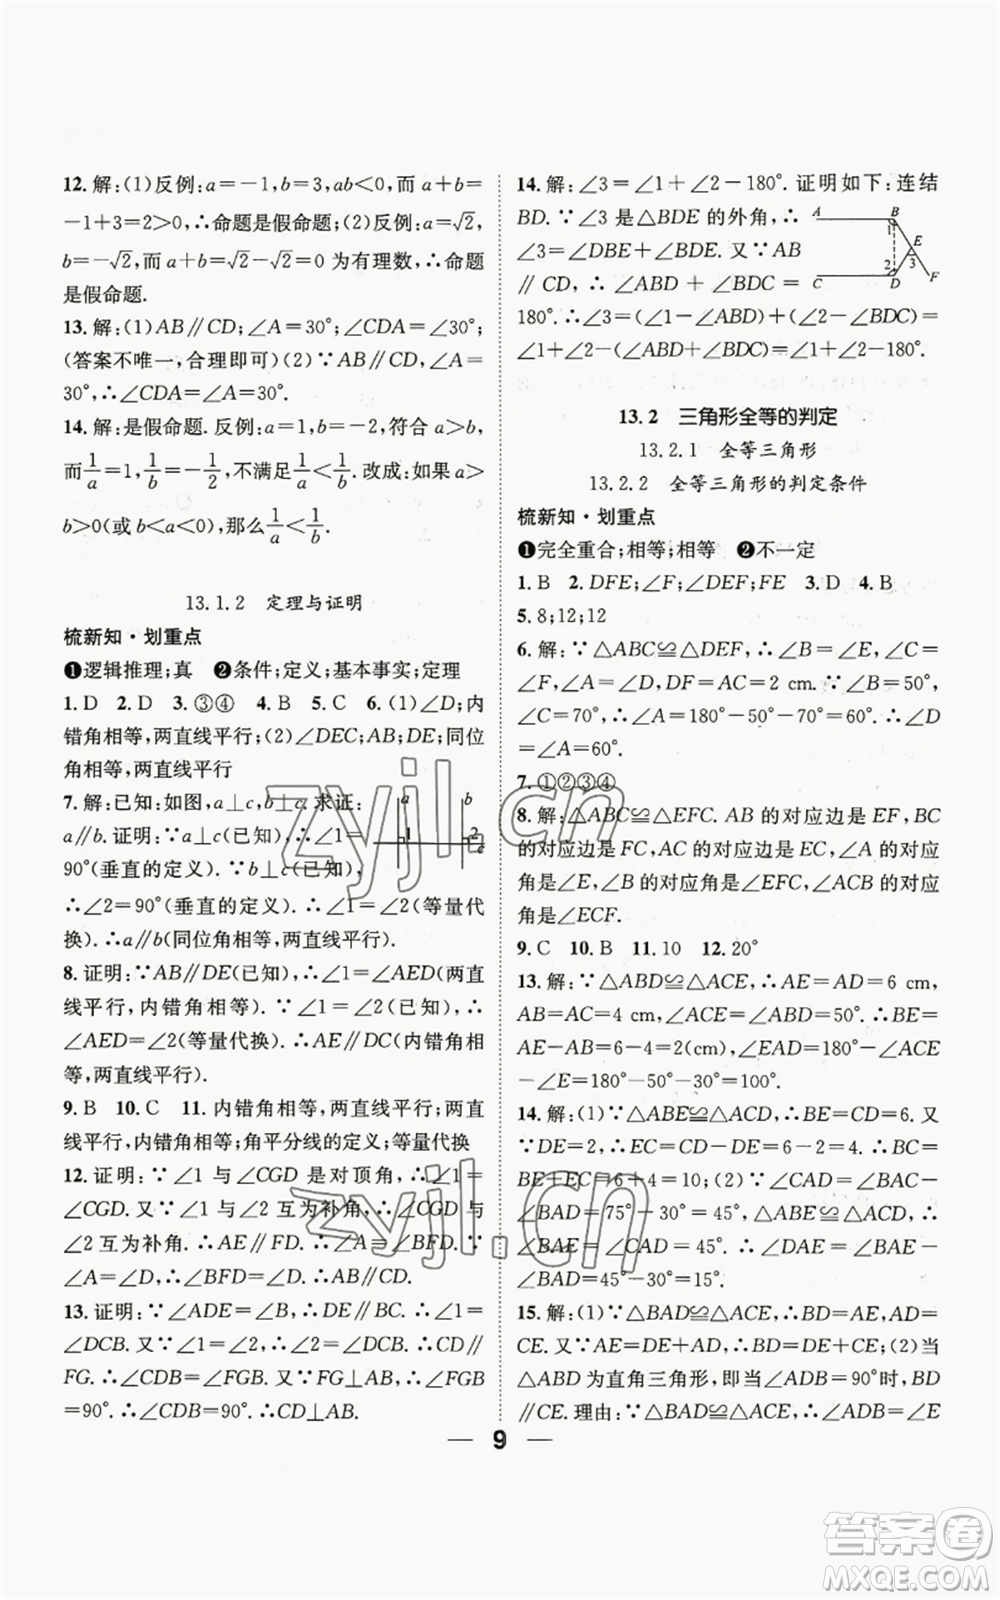 12. 解:(1)反例:a=-1,b=3,ab<0,而 a+b=
-1+3=2>0,∴命题是假命题;(2)反例:a=√2,
b=-√2,而 a+b=√2-√2=0 为有理数,∴命题
是假命题.
13. 解:(1)AB∥CD;∠A=30°;∠CDA=∠30°;
(答案不唯一,合理即可)(2)∵AB∥CD,∠A=
30°,∴∠CDA=∠A=30°.
14. 解:是假命题. 反例:a=1,b=-2,符合 a>b,
而 1/a=1,1/b=-1/2,不满足 1/a<1/b. 改成:如果 a>
b>0(或 b<a<0),那么 1/a<1/b.
13.1.2 定理与证明
梳新知·划重点
❶逻辑推理;真 ❷条件;定义;基本事实;定理
1. D 2. D 3. ③④ 4. B 5. C 6. (1)∠D;内
错角相等,两直线平行;(2)∠DEC;AB;DE;同位
角相等,两直线平行
7. 解:已知:如图,a⊥c,b⊥c. 求证:
a∥b. 证明:∵a⊥c(已知),∴∠1=
90°(垂直的定义). ∵b⊥c(已知),
∴∠2=90°(垂直的定义). ∴∠1=∠2(等量代
换). ∴a∥b(同位角相等,两直线平行).
a b 1 2 c
8. 证明:∵AB∥DE(已知),∴∠1=∠AED(两直
线平行,内错角相等). ∵∠1=∠2(已知),∴
∠AED=∠2(等量代换). ∴AE∥DC(内错角相
等,两直线平行).
9. B 10. C 11. 内错角相等,两直线平行;两直线
平行,内错角相等;角平分线的定义;等量代换
12. 证明:∵∠1 与∠CGD 是对顶角,∴∠1=
∠CGD. 又∵∠1 与∠2 互为补角,∴∠CGD 与
∠2 互为补角. ∴AE∥FD. ∴∠A=∠BFD. ∵
∠A=∠D,∴∠BFD=∠D. ∴AB∥CD.
13. 证明:∵∠ADE=∠B,∴DE∥BC. ∴∠1=
∠DCB. 又∵∠1=∠2,∴∠2=∠DCB. ∴CD∥
FG. ∴∠CDB=∠FGB. 又∵FG⊥AB,∴∠FGB
=90°. ∴∠CDB=90°. ∴CD⊥AB.
14. 解:∠3=∠1+∠2-180°. 证明如下:连结
BD. ∵∠3 是△BDE 的外角,∴
∠3=∠DBE+∠BDE. 又∵AB
∥CD,∴∠ABD+∠BDC=
180°. ∴∠3=(∠1-∠ABD)+(∠2-∠BDC)=
∠1+∠2-(∠ABD+∠BDC)=∠1+∠2-180°.
A B 1 E 2 3 C D F
13.2 三角形全等的判定
13.2.1 全等三角形
13.2.2 全等三角形的判定条件
梳新知·划重点
❶完全重合;相等;相等 ❷不一定
1. B 2. DFE;∠F;∠DEF;FE 3. D 4. B
5. 8;12;12
6. 解:∵△ABC≌△DEF,∴∠B=∠E,∠C=
∠F,∠A=∠D,DF=AC=2 cm. ∵∠B=50°,
∠C=70°,∴∠A=180°-50°-70°=60°. ∴∠D
=∠A=60°.
7. ①②③④
8. 解:△ABC≌△EFC. AB 的对应边是 EF,BC
的对应边是 FC,AC 的对应边是 EC,∠A 的对应
角是∠E,∠B 的对应角是∠EFC,∠ACB 的对应
角是∠ECF.
9. C 10. B 11. 10 12. 20°
13. 解:∵△ABD≌△ACE,∴AE=AD=6 cm,
AB=AC=4 cm,∠ACE=∠ABD=50°. ∴BE=
AE-AB=6-4=2(cm),∠EAD=180°-∠ACE
-∠E=180°-50°-30°=100°.
14. 解:(1)∵△ABE≌△ACD,∴BE=CD=6. 又
∵DE=2,∴EC=CD-DE=6-2=4. ∴BC=
BE+EC=6+4=10;(2)∵∠CAD=∠BAC-
∠BAD=75°-30°=45°,△ABE≌△ACD,∴
∠BAE=∠CAD=45°. ∴∠DAE=∠BAE-
∠BAD=45°-30°=15°.
15. 解:(1)∵△BAD≌△ACE,∴BD=AE,AD=
CE. 又∵AE=AD+DE,∴BD=DE+CE;(2)当
△ABD 为直角三角形,即当∠ADB=90°时,BD
∥CE. 理由:∵△BAD≌△ACE,∴∠ADB=∠E
— 9 —
zyjl.cn
zyjl.cn
答案卷
MXQE.COM